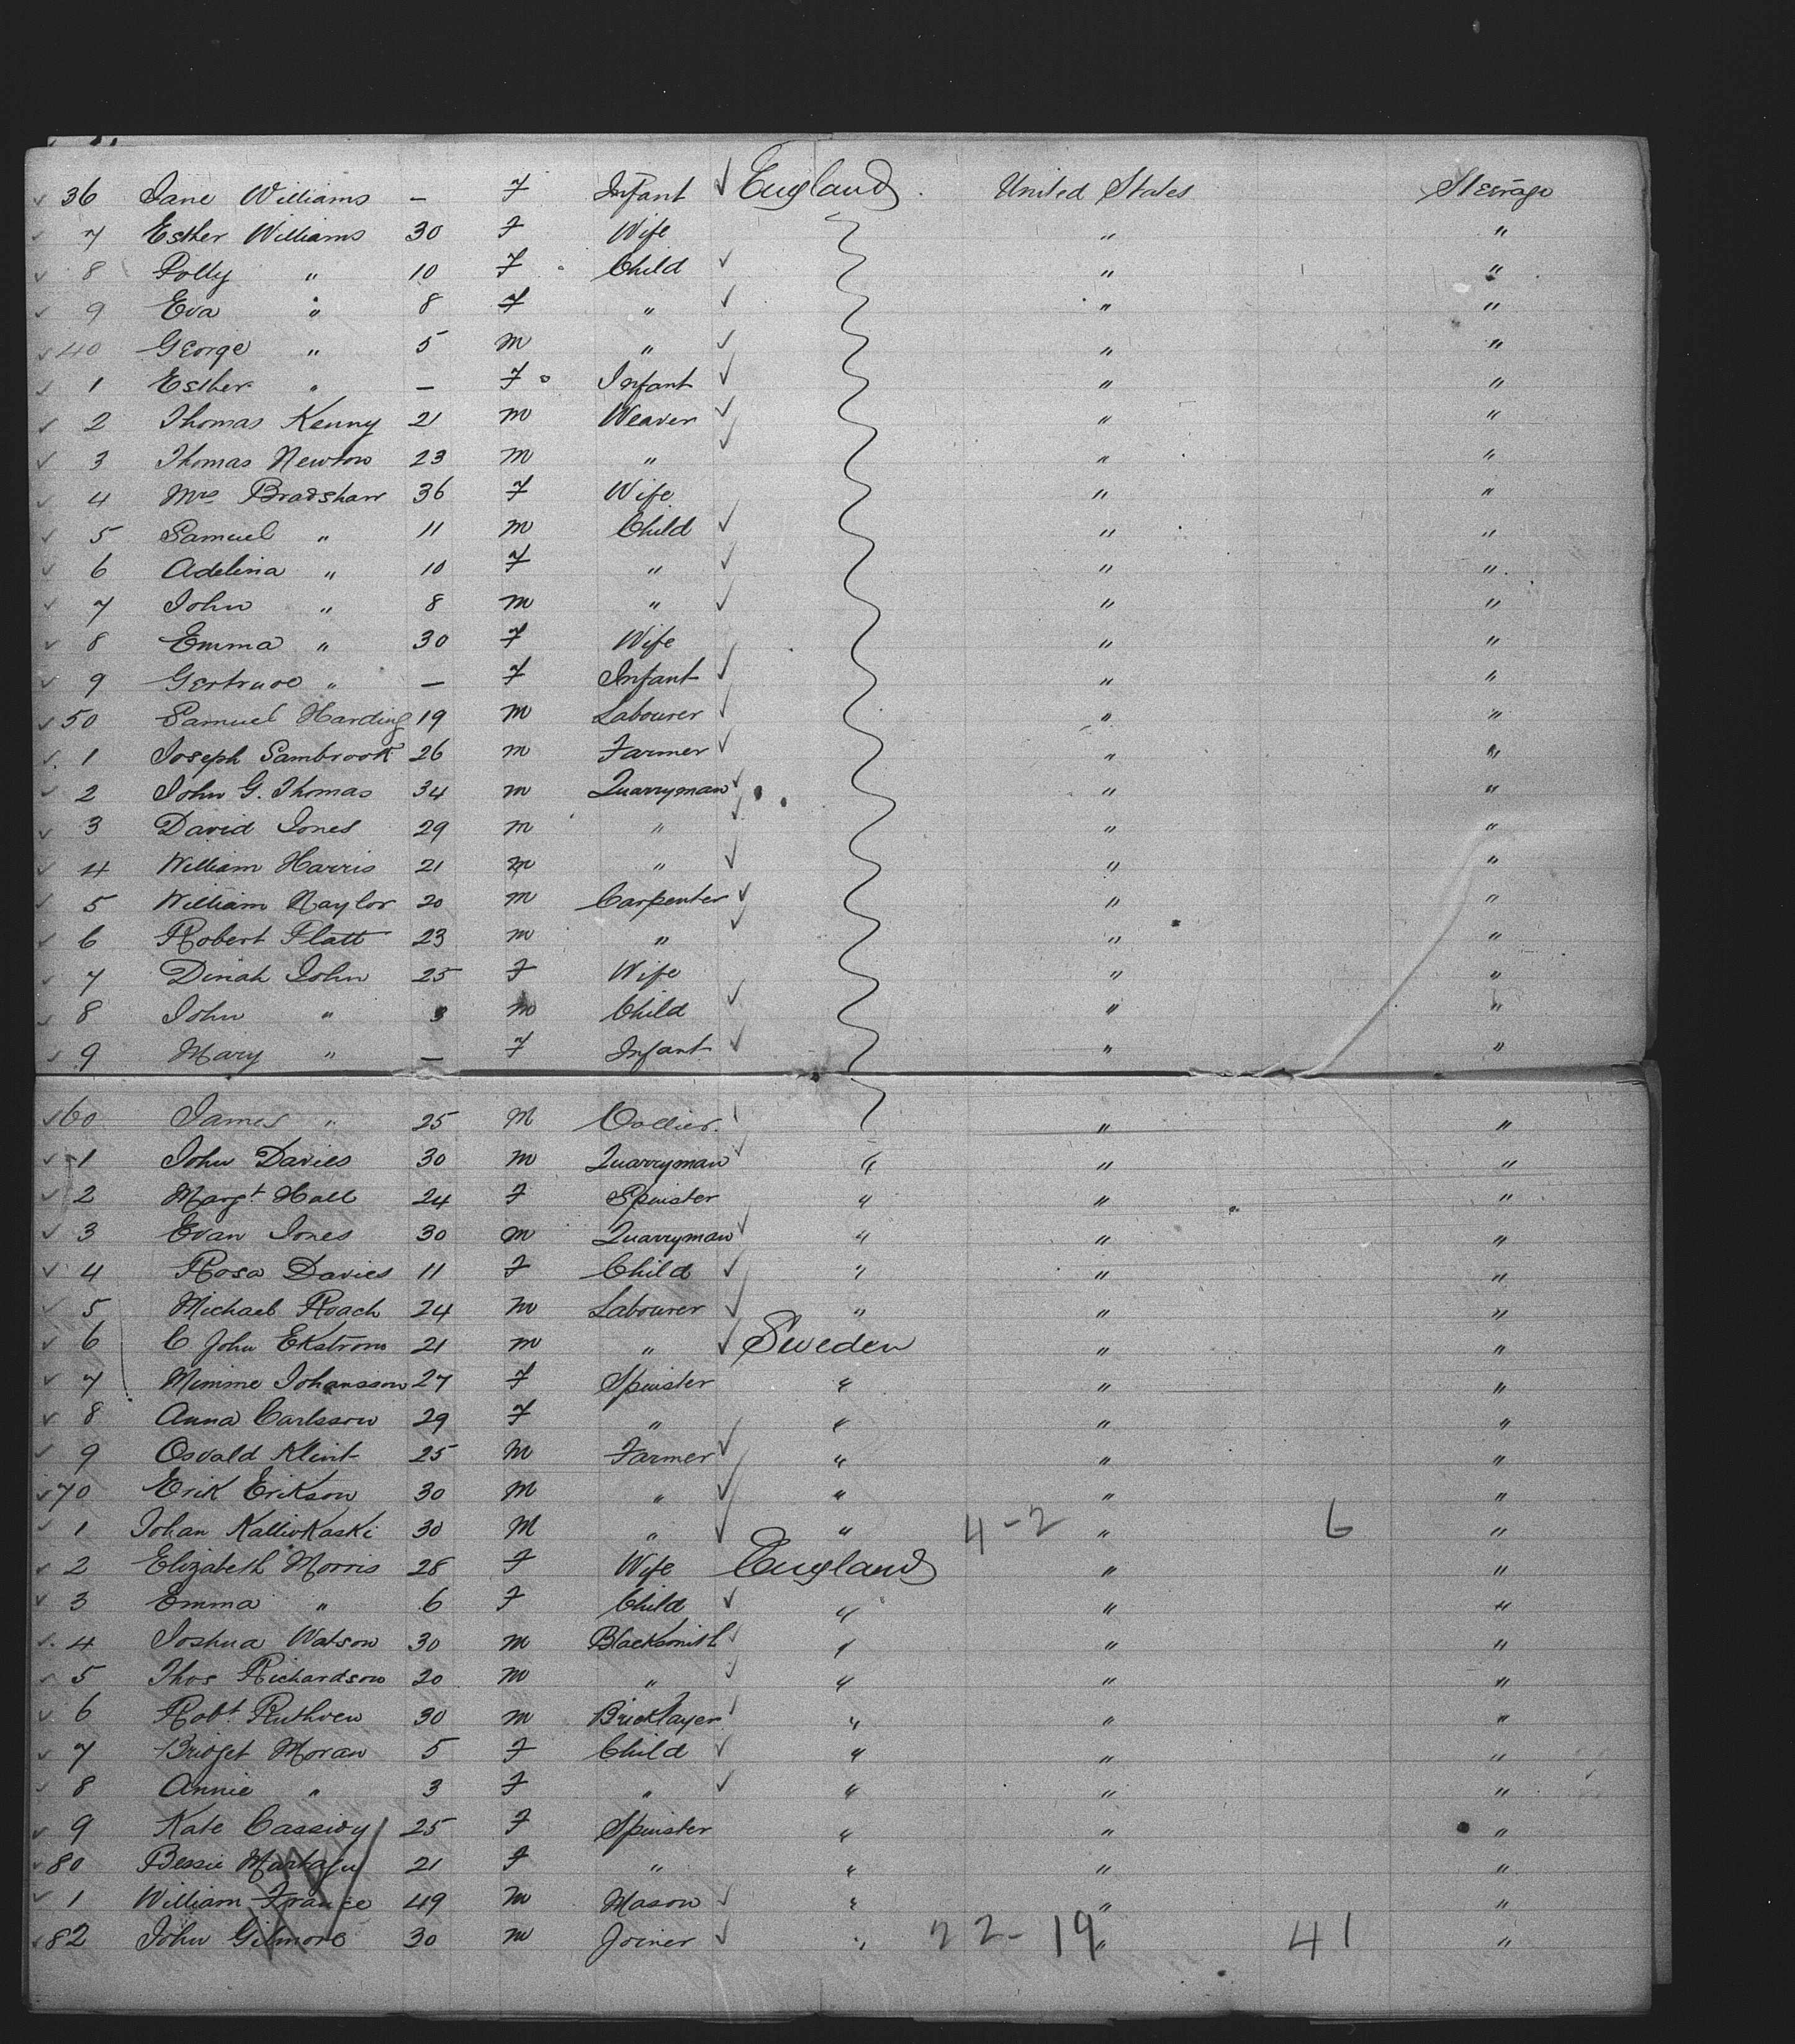 36 Jane Williams — F Infant England United States Steerage
7 Esther Williams 30 F Wife " "
8 Polly " 10 F Child " "
9 Eva " 8 F " " "
40 George " 5 m " " "
1 Esther " — F Infant " "
2 Thomas Kenny 21 m Weaver " "
3 Thomas Newton 23 m " " "
4 Mrs Bradshaw 36 F Wife " "
5 Samuel " 11 m Child " "
6 Adelina " 10 F " " "
7 John " 8 m " " "
8 Emma " 30 F Wife " "
9 Gertrude " — F Infant " "
50 Samuel Harding 19 m Labourer " "
1 Joseph Sambrook 26 m Farmer " "
2 John G. Thomas 34 m Quarryman " "
3 David Jones 29 m " " "
4 William Harris 21 m " " "
5 William Naylor 20 m Carpenter " "
6 Robert Platt 23 m " " "
7 Dinah John 25 F Wife " "
8 John " 3 m Child " "
9 Mary " — F Infant " "
60 James " 25 M Collier " "
1 John Davies 30 m Quarryman " " "
2 Margt Hall 24 F Spinster " " "
3 Evan Jones 30 m Quarryman " " "
4 Rosa Davies 11 F Child " " "
5 Michael Roach 24 m Labourer " " "
6 C John Ekstrom 21 m " Sweden " "
7 Mimme Johansson 27 F Spinster " " "
8 Anna Carlsson 29 F " " " "
9 Osvald Klint 25 M Farmer " " "
70 Erik Erikson 30 M " " " "
1 Johan Kalliokaski 30 M " " 4-2 " 6 "
2 Elizabeth Morris 28 F Wife England " "
3 Emma " 6 F Child " " "
4 Joshua Watson 30 m Blacksmith " " "
5 Thos Richardson 20 m " " " "
6 Robt Ruthven 30 m Bricklayer " " "
7 Bridget Moran 5 F Child " " "
8 Annie " 3 F " " " "
9 Kate Cassidy 25 F Spinster " " "
80 Bessie 21 F " " " "
1 William France 49 m Mason " " "
82 John Gilmore 30 m Joiner " 22-19 " 41 "